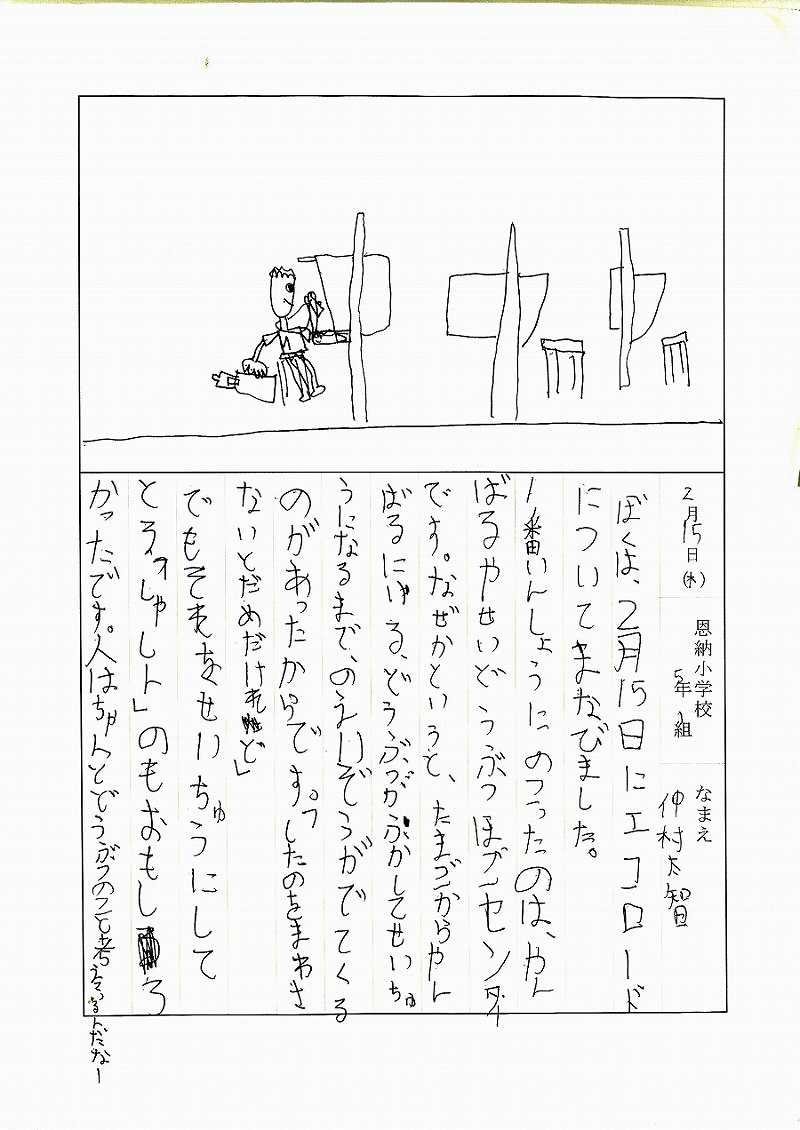 2月15日(木)
恩納小学校
5年1組
なまえ
仲村太智
ぼくは、2月15日にエコロード
についてまなびました。
1番いんしょうにのっったのは、やん
ばるやせいどうぶつほごセンター
です。なぜかというと、たまごからやん
ばるにいる、どうぶつがふかしてせいちゅ
うになるまで、のえいぞうがでてくる
のがあったからです。「したのをまわさ
ないとだめだけれど」
でもそれをせいちゅうにして
とろっしゃしト」のもおもしろ
かったです。人はちゃんとどうぶつのこと考えるんだなー